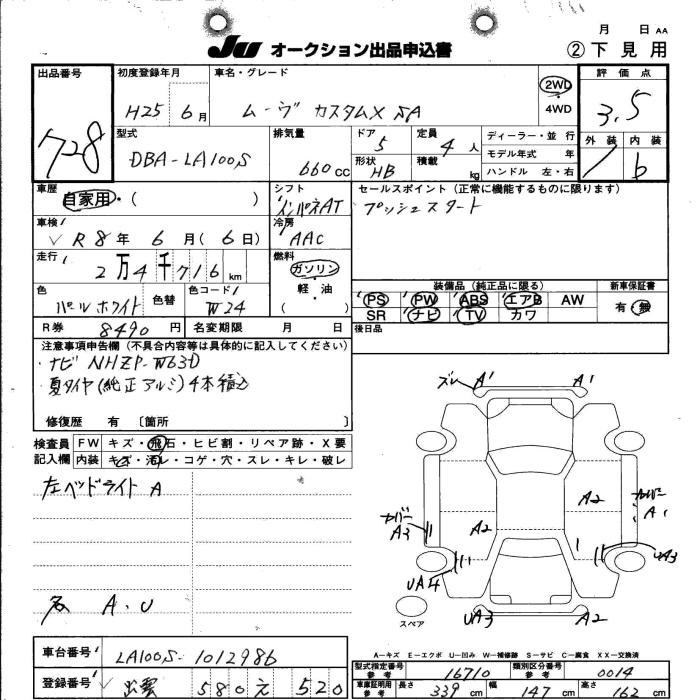 JU オークション出品申込書
月 日 AA
② 下見用
出品番号 728
初度登録年月 H25 6月
車名・グレード ムーヴ カスタムX SA
2WD
4WD
評価点 3.5
外装 内装
b
型式 DBA-LA100S
排気量 660cc
ドア 5
定員 4人
形状 HB
積載 kg
ディーラー・並行
モデル年式 年
ハンドル 左・右
車歴 自家用・( )
シフト インパネAT
セールスポイント(正常に機能するものに限ります)
プッシュスタート
車検 R8年 6月(6日)
冷房 AAC
走行 2万4千716km
燃料 ガソリン
軽・油
( )
色 パールホワイト 色替
色コード W24
装備品(純正品に限る)
PS PW ABS エアB AW
SR ナビ TV カワ
新車保証書
有・無
R券 8490円
名変期限 月 日
後日品
注意事項申告欄(不具合内容等は具体的に記入してください)
・ナビ NHZP-W63D
・夏タイヤ(純正アルミ)4本積込
修復歴 有 〔箇所 〕
検査員記入欄
FW キズ・飛石・ヒビ割・リペア跡・X要
内装 キズ・汚れ・コゲ・穴・スレ・キレ・破レ
左ヘッドライト A
各 A.U
ズレ A1 A1
A2
カバー A1
カバー A3
A2
UA4
UA3
UA3 A2
スペア
A-キズ E-エクボ U-凹み W-補修跡 S-サビ C-腐食 XX-交換済
車台番号 LA100S-1012986
登録番号 出雲 580 え 520
型式指定番号 参考 16710
類別区分番号 参考 0014
車庫証明用 参考 長さ 339cm 幅 147cm 高さ 162cm